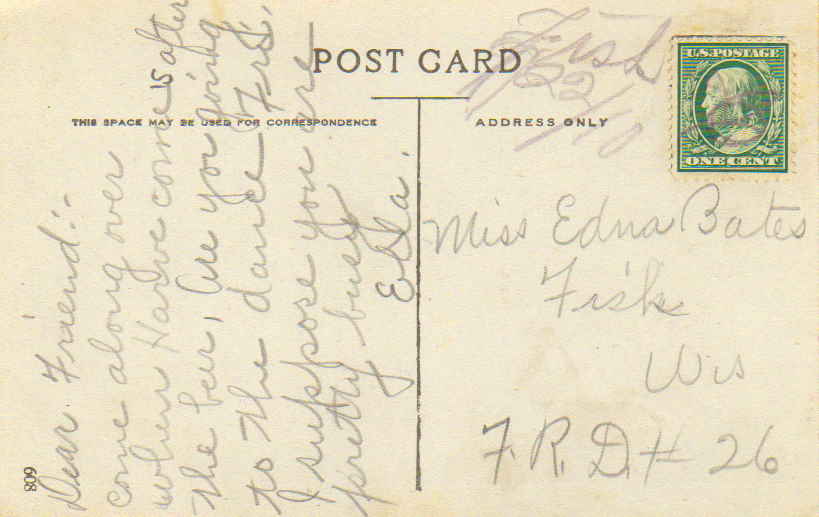 POST CARD
THIS SPACE MAY BE USED FOR CORRESPONDENCE
ADDRESS ONLY
Fish
22
/10
U.S. POSTAGE
ONE CENT
Dear Friend:-
come along over
when Harve come 15 after
the beer, are you going
to the dance Fri.
I suppose you are
pretty busy
Ella.
Miss Edna Bates
Fisk
Wis
F. R. D. # 26
608